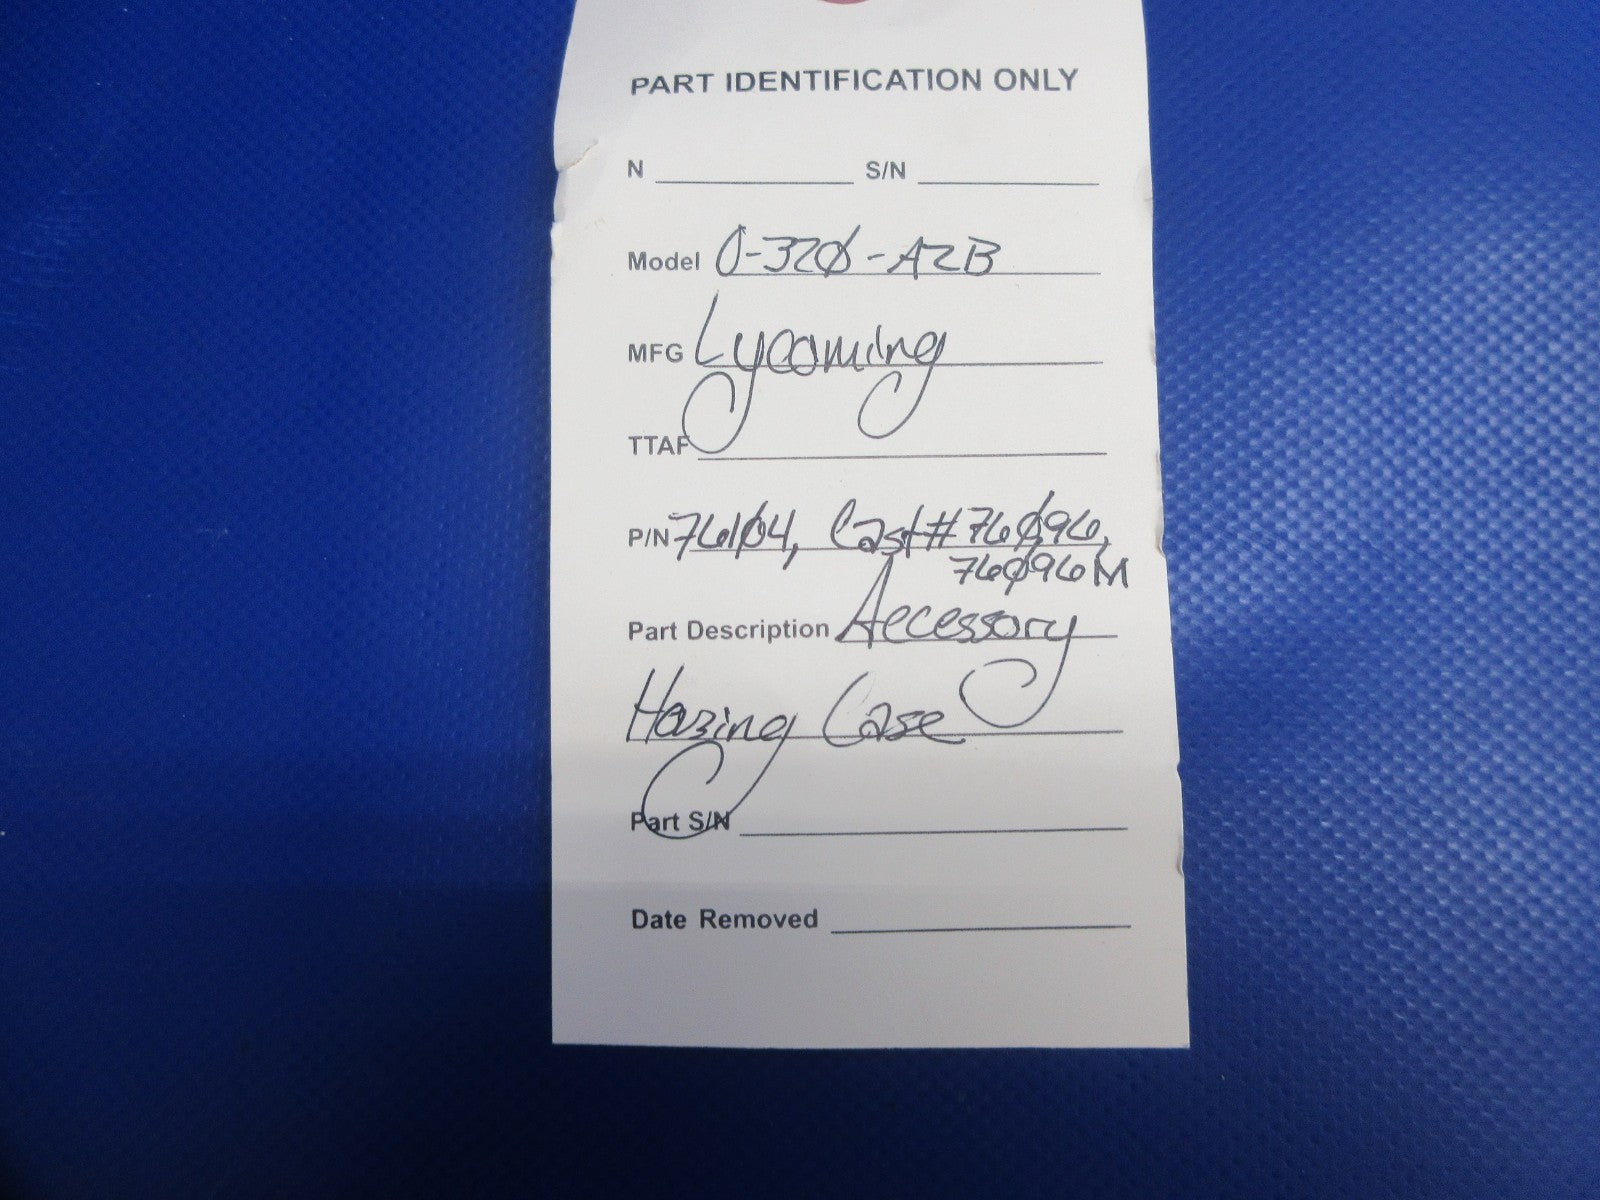 PART IDENTIFICATION ONLY
N ____________ S/N ____________
Model O-320-A2B
MFG Lycoming
TTAF ____________
P/N 76104, Cast# 76096,
76096M
Part Description Accessory
Hosing Case
Part S/N ____________
Date Removed ____________